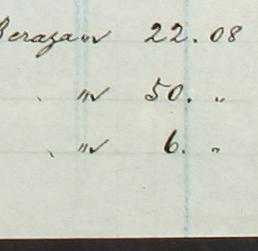 Beraza " 22.08
" 50. "
" 6. "